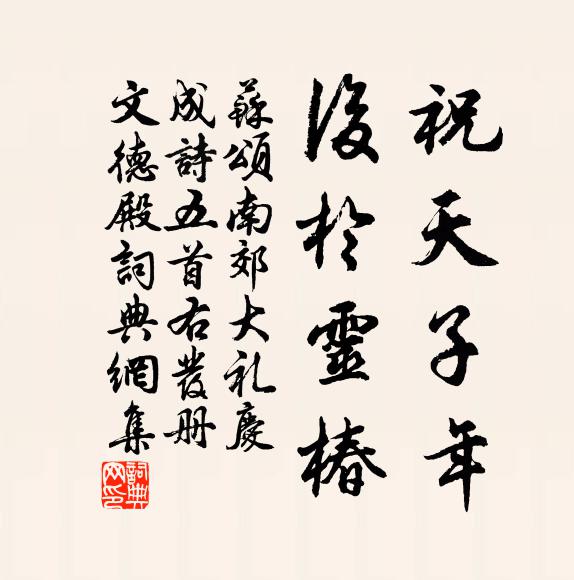 祝天子年
後於靈椿
蘇頌南郊大礼慶
成詩五首右發册
文德殿詞典網集
詞典网印